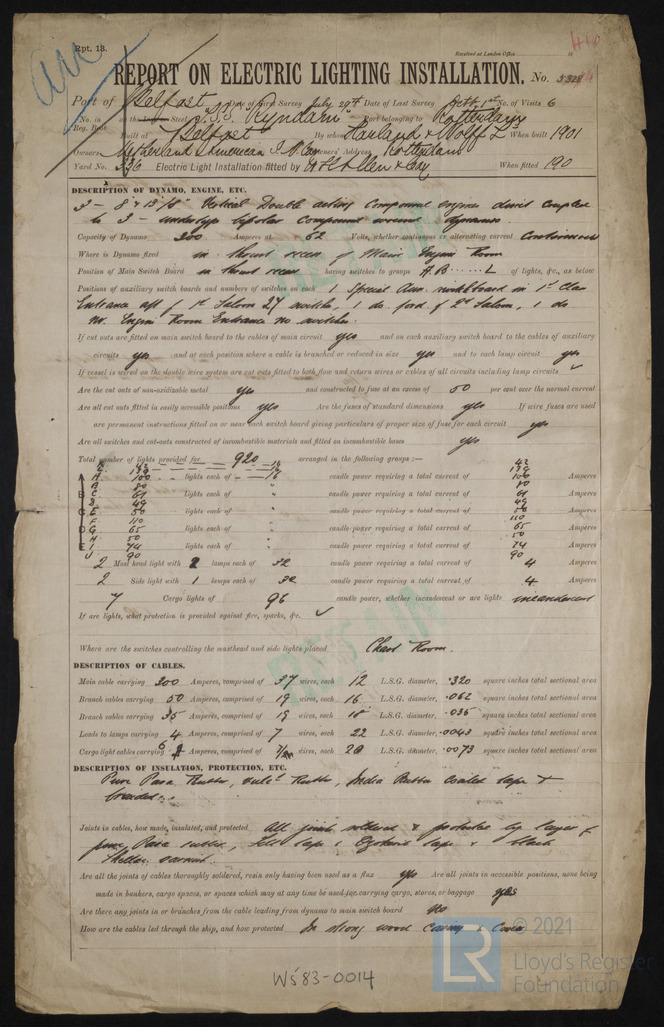 Rpt. 13.
Received at London Office
REPORT ON ELECTRIC LIGHTING INSTALLATION. No.
Port of Belfast Date of First Survey July 29th Date of Last Survey Octr 1st No. of Visits 6
No. in Reg. Book on the Steel "S.S. Ryndam" Port belonging to Rotterdam
Built at Belfast By whom Harland & Wolff Ld When built 1901
Owners Netherland American S.N. Co. Owners' Address Rotterdam
Yard No. 336 Electric Light Installation fitted by W H Allen & Coy When fitted 190
DESCRIPTION OF DYNAMO, ENGINE, ETC.
3 - 8 & 13 Vertical Double acting Compound engines direct coupled
to 3 - undertype bipolar Compound wound dynamos
Capacity of Dynamo 300 Amperes at 62 Volts, whether continuous or alternating current Continuous
Where is Dynamo fixed in thrust recess of Main Engine Room
Position of Main Switch Board in thrust recess having switches to groups A.B......L of lights, &c., as below
Positions of auxiliary switch boards and numbers of switches on each 1 Special Aux. switchboard in 1st Class
Entrance aft of 1st Saloon 27 switches, 1 do. ford of 2nd Saloon, 1 do
nr. Engine Room Entrance no switches.
If cut outs are fitted on main switch board to the cables of main circuit yes and on each auxiliary switch board to the cables of auxiliary
circuits yes and at each position where a cable is branched or reduced in size yes and to each lamp circuit yes
If vessel is wired on the double wire system are cut outs fitted to both flow and return wires or cables of all circuits including lamp circuits ✓
Are the cut outs of non-oxidizable metal yes and constructed to fuse at an excess of 50 per cent over the normal current
Are all cut outs fitted in easily accessible positions yes Are the fuses of standard dimensions yes If wire fuses are used
are permanent instructions fitted on or near each switch board giving particulars of proper size of fuse for each circuit yes
Are all switches and cut-outs constructed of incombustible materials and fitted on incombustible bases yes
Total number of lights provided for 920 arranged in the following groups :—
A 100 lights each of 16 candle power requiring a total current of 100 Amperes
B 80 80
C 61 lights each of " candle power requiring a total current of 61 Amperes
49 49
E 50 lights each of " candle power requiring a total current of 50 Amperes
F 110 110
G 65 lights each of " candle power requiring a total current of 65 Amperes
H 50 50
I 74 lights each of " candle power requiring a total current of 74 Amperes
J 90 90
2 Mast head light with 2 lamps each of 32 candle power requiring a total current of 4 Amperes
2 Side light with 1 lamps each of 32 candle power requiring a total current of 4 Amperes
7 Cargo lights of 96 candle power, whether incandescent or arc lights incandescent
If arc lights, what protection is provided against fire, sparks, &c. ✓
Where are the switches controlling the masthead and side lights placed Chart Room.
DESCRIPTION OF CABLES.
Main cable carrying 300 Amperes, comprised of 37 wires, each 12 L.S.G. diameter, .320 square inches total sectional area
Branch cables carrying 50 Amperes, comprised of 19 wires, each 16 L.S.G. diameter, .062 square inches total sectional area
Branch cables carrying 35 Amperes, comprised of 19 wires, each 18 L.S.G. diameter, .035 square inches total sectional area
Leads to lamps carrying 4 Amperes, comprised of 7 wires, each 22 L.S.G. diameter, .0043 square inches total sectional area
Cargo light cables carrying 6 Amperes, comprised of wires, each L.S.G. diameter, .0073 square inches total sectional area
DESCRIPTION OF INSULATION, PROTECTION, ETC.
Pure Para Rubber, vulcd Rubber, India Rubber coated tape &
braided.
Joints in cables, how made, insulated, and protected All joints soldered & protected by layers of
pure Para rubber, tape & tape & black
Shellac varnish.
Are all the joints of cables thoroughly soldered, resin only having been used as a flux yes Are all joints in accessible positions, none being
made in bunkers, cargo spaces, or spaces which may at any time be used for carrying cargo, stores, or baggage yes
Are there any joints in or branches from the cable leading from dynamo to main switch board No
How are the cables led through the ship, and how protected In strong wood Casing & Cover
RETAIN
RETAIN
WS83-0014
LR
© 2021
Lloyd's Register
Foundation